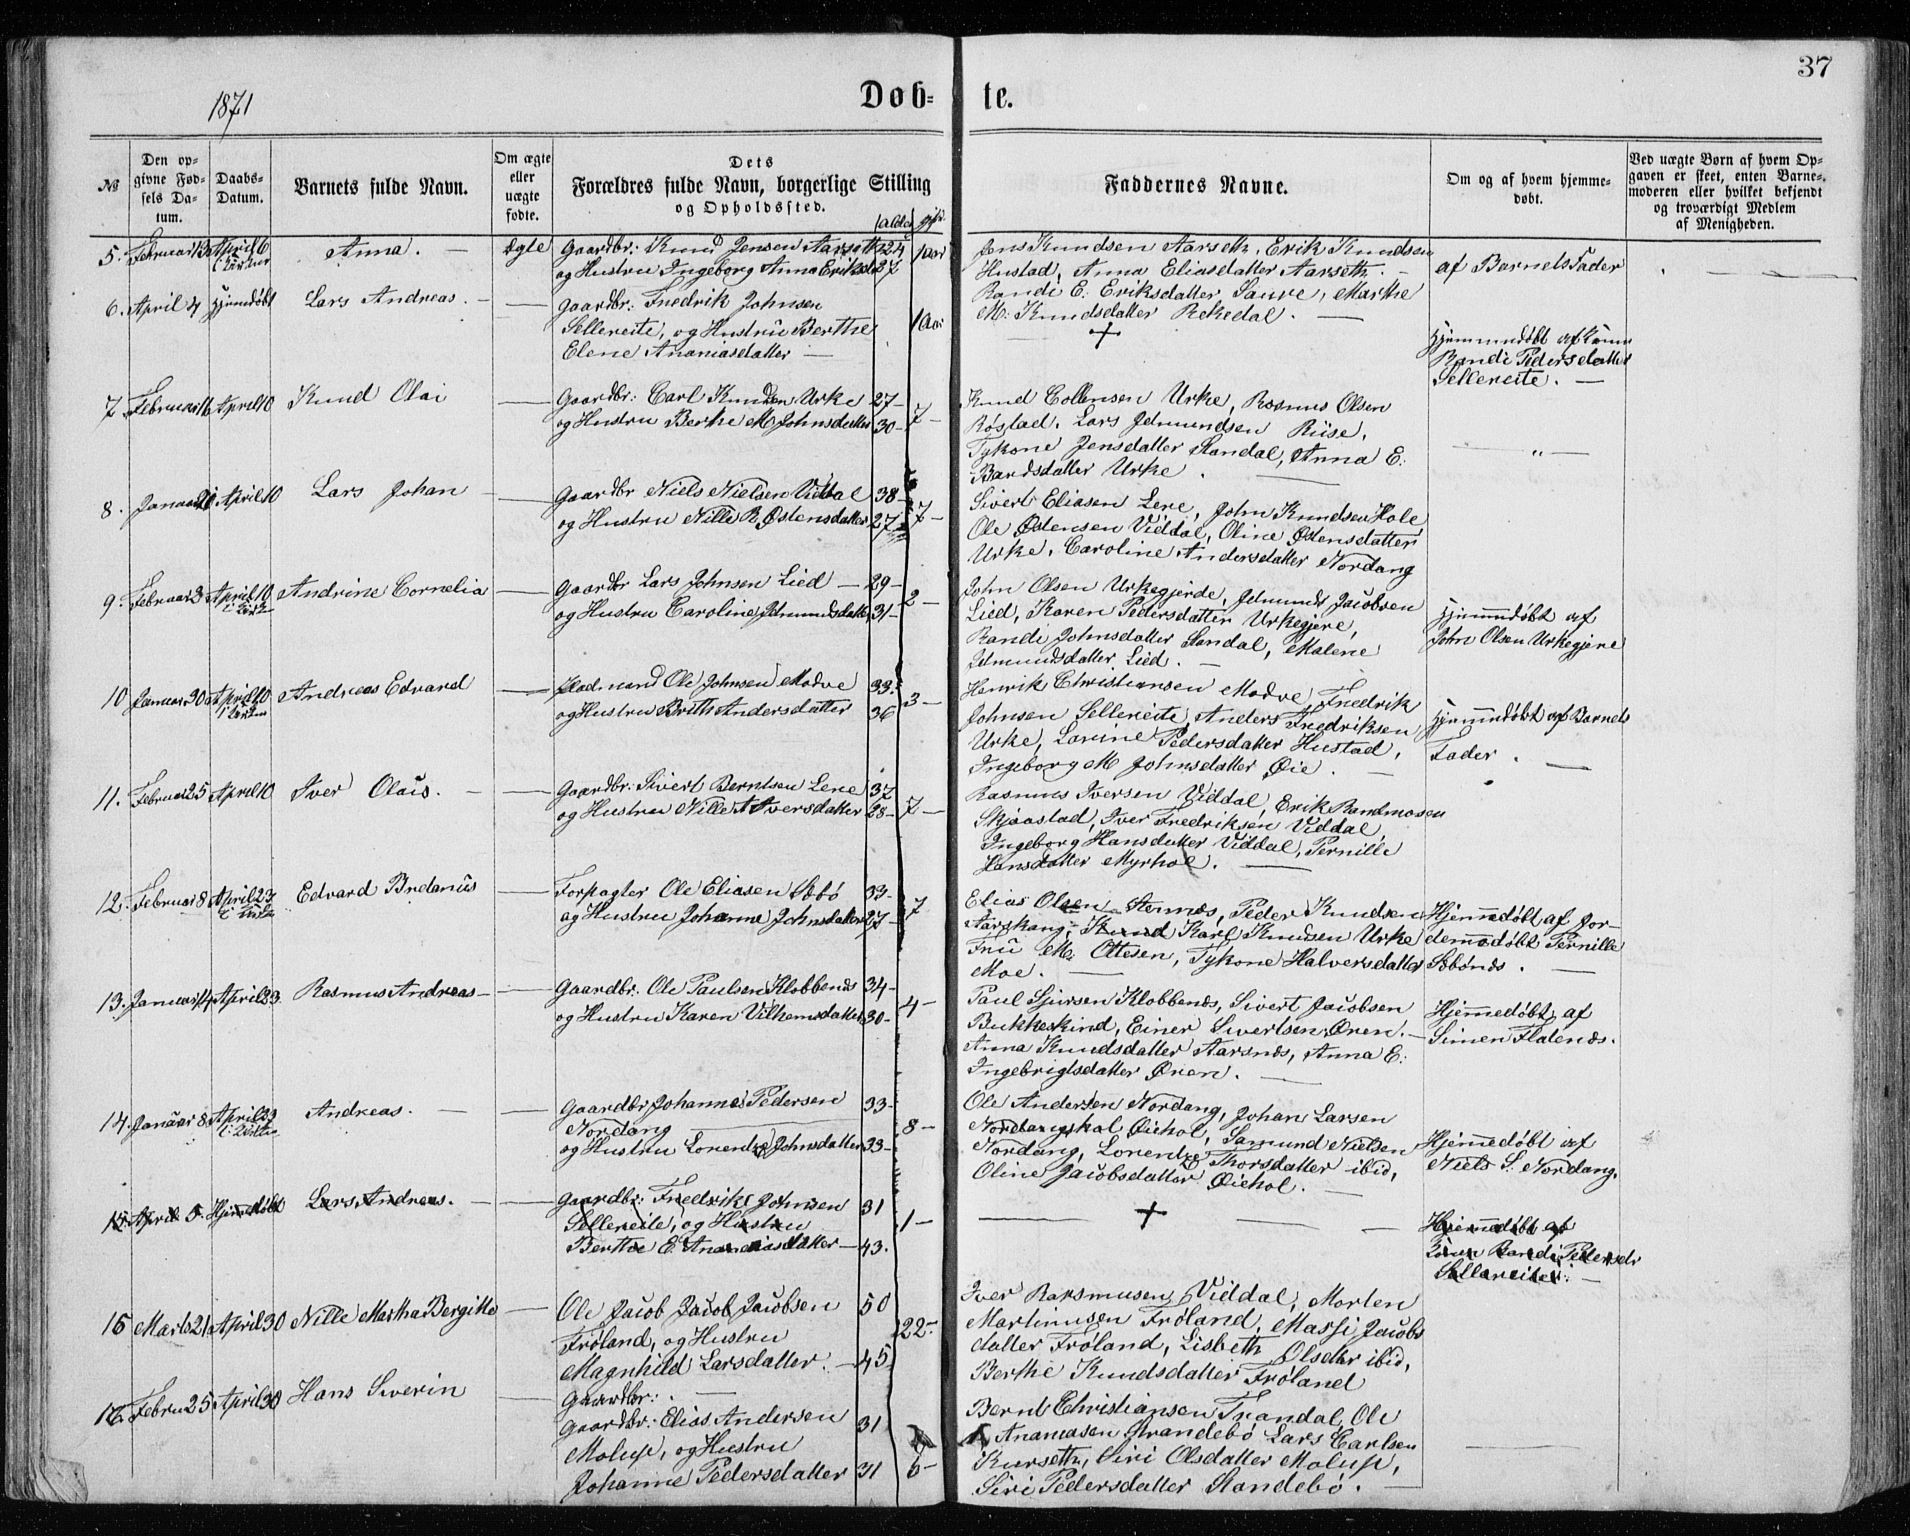 37
1871
Døb- te.
№
Den opgivne Fødsels Datum.
Daabs-Datum.
Barnets fulde Navn.
Om ægte eller uægte fødte.
Dets Forældres fulde Navn, borgerlige Stilling og Opholdssted.
Alder
gift
Faddernes Navne.
Om og af hvem hjemmedøbt.
Ved uægte Børn af hvem Opgaven er skeet, enten Barnemoderen eller hvilket bekjendt og troværdigt Medlem af Menigheden.
5. Februar 13 April 6 Anna. — Ægte Gaardbr: Knud Jensen Aarseth 24 1 Aar
og Hustru Ingeborg Anna Eriksdr 27
Jens Knudsen Aarseth, Erik Knudsen
Hustad, Anna Eliasdatter Aarseth. —
Randi E. Eriksdatter Saure, Marthe
M. Knudsdatter Rekedal. —
af Barnets Fader
6. April 4 Hjemdøbt Lars Andreas. — — Gaardbr: Fredrik Johnsen
Sellereite, og Hustru Berthe 1 Aar
Elene Ananiasdatter —
+
Hjemmedøbt af Konen
Randi Pedersdatter
Sellereite. —
7 Februar 16 April 10 Knud Olai — Gaardbr: Carl Knudsen Urke 27 —
og Hustru Berthe M Johnsdatter 30 — 7 —
Knud Collensen Urke, Rasmus Olsen
Røstad. Lars Jdmundsen Riise,
Tykone Jensdatter Standal, Anna E.
Bardsdatter Urke.
— „ —
8. Januar 20 April 10 Lars Johan — — Gaardbr Niels Nielsen Viddal 38 —
og Hustru Nille R. Østensdatter 27 7 —
Sivert Eliasen Lene, John Knudsen Hole
Ole Østensen Viddal, Oline Østensdatter
Urke, Caroline Andersdatter Nordang
9. Februar 3 April 10 i Kirken Andrine Cornelia — Gaardbr Lars Johnsen Lied — 29 —
og Hustru Caroline Jdmundsdatter 31 — 2 —
John Olsen Urkegjerde, Jdmund Jacobsen
Lied, Karen Pedersdatter Urkegjere,
Randi Johnsdatter Standal, Malene
Jdmundsdatter Lied. —
Hjemmedøbt af
John Olsen Urkegjere
10 Januar 30 April 10 i Kirken Andreas Edvard — Ole Johnsen Modve 33.
og Hustru Brith Andersdatter 36 3 —
Henrik Christiansen Modve, Fredrik
Johnsen Sellereite, Anders Fredriksen
Urke, Pedersdatter Hustad,
Ingeborg M Johnsdatter Øie. —
Hjemmedøbt af Barnets
Fader. —
11. Februar 25 April 10 Iver Olaus. — — Gaardbr: Sivert Berntsen Lene 37
og Hustru Nille A Iversdatter 28 — 7 —
Rasmus Iversen Viddal, Erik Randmosen
Skjaastad, Iver Fredriksen Viddal,
Ingeborg Hansdatter Viddal, Pernille
Hansdatter Myrhol. —
12. Februar 8 April 23 Edvard Bredanus — Forpagter Ole Eliasen Sæbø 33 —
og Hustru Johanne Johnsdatter 27 — 7
Elias Olsen Aarsnes, Peder Knudsen
Aarskang, Knud Karl Knudsen Urke
Fru M. Ottesen, Tykone Halversdatter
Moe. —
Hjemmedøbt af Jordemoder Pernille
Sæbønes. —
13. Januar 14 April 23 Rasmus Andreas — — Gaardbr: Ole Paulsen Klobbenes 34 —
og Hustru Karen Vilhemsdatter 30 — 4 —
Paul Sjursen Klobbenes, Sivert Jacobsen
Bukkeskind, Einer Sivertsen Øren. —
Anna Knudsdatter Aarsnes, Anna E.
Ingebrigtsdatter Øren. —
Hjemmedøbt af
Simen Flatenes.
14. Januar 8 April 23 Andreas. — — Gaardbr Johannes Pedersen 33 —
Nordang 8 —
og Hustru Lorentze Johnsdatter 33 —
Ole Andersen Nordang, Johan Larsen
Nordangskal Øiehol, Samund Nielsen
Nordang, Lorentze Thorsdatter ibid,
Oline Jacobsdatter Øiehol. —
Hjemmedøbt af
Niels S. Nordang.
15. April 5 Hjemmedøbt Lars Andreas. — — Gaardbr. Fredrik Johnsen 31
Sellereite, og Hustru 1 —
Berthe E. Ananiasdatter — 43.
— + — —
Hjemmedøbt af
Konen Randi Pedersdr
Sellereite. —
15 Marts 21 April 30 Nille Martha Bergitte — Ole Jacob Jacob Jacobsen 50
Frøland, og Hustru 22 —
Magnhild Larsdatter. — 45
Iver Rasmusen Viddal, Morten
Martinusen Frøland, Massi Jacobsdatter Frøland, Lisbeth Olsdtr ibid,
Berthe Knudsdatter Frøland
16. Febru 25 April 30 Hans Severin — Gaardbr: —
Gaardbr: Elias Andersen 31
Molup, og Hustru
Johanne Pedersdatter 31 6 —
Bernt Christiansen Trandal, Ole
Ananiasen Strandebø Lars Carlsen
Kurseth, Siri Olsdatter Molup,
Siri Pedersdatter Standebø. —